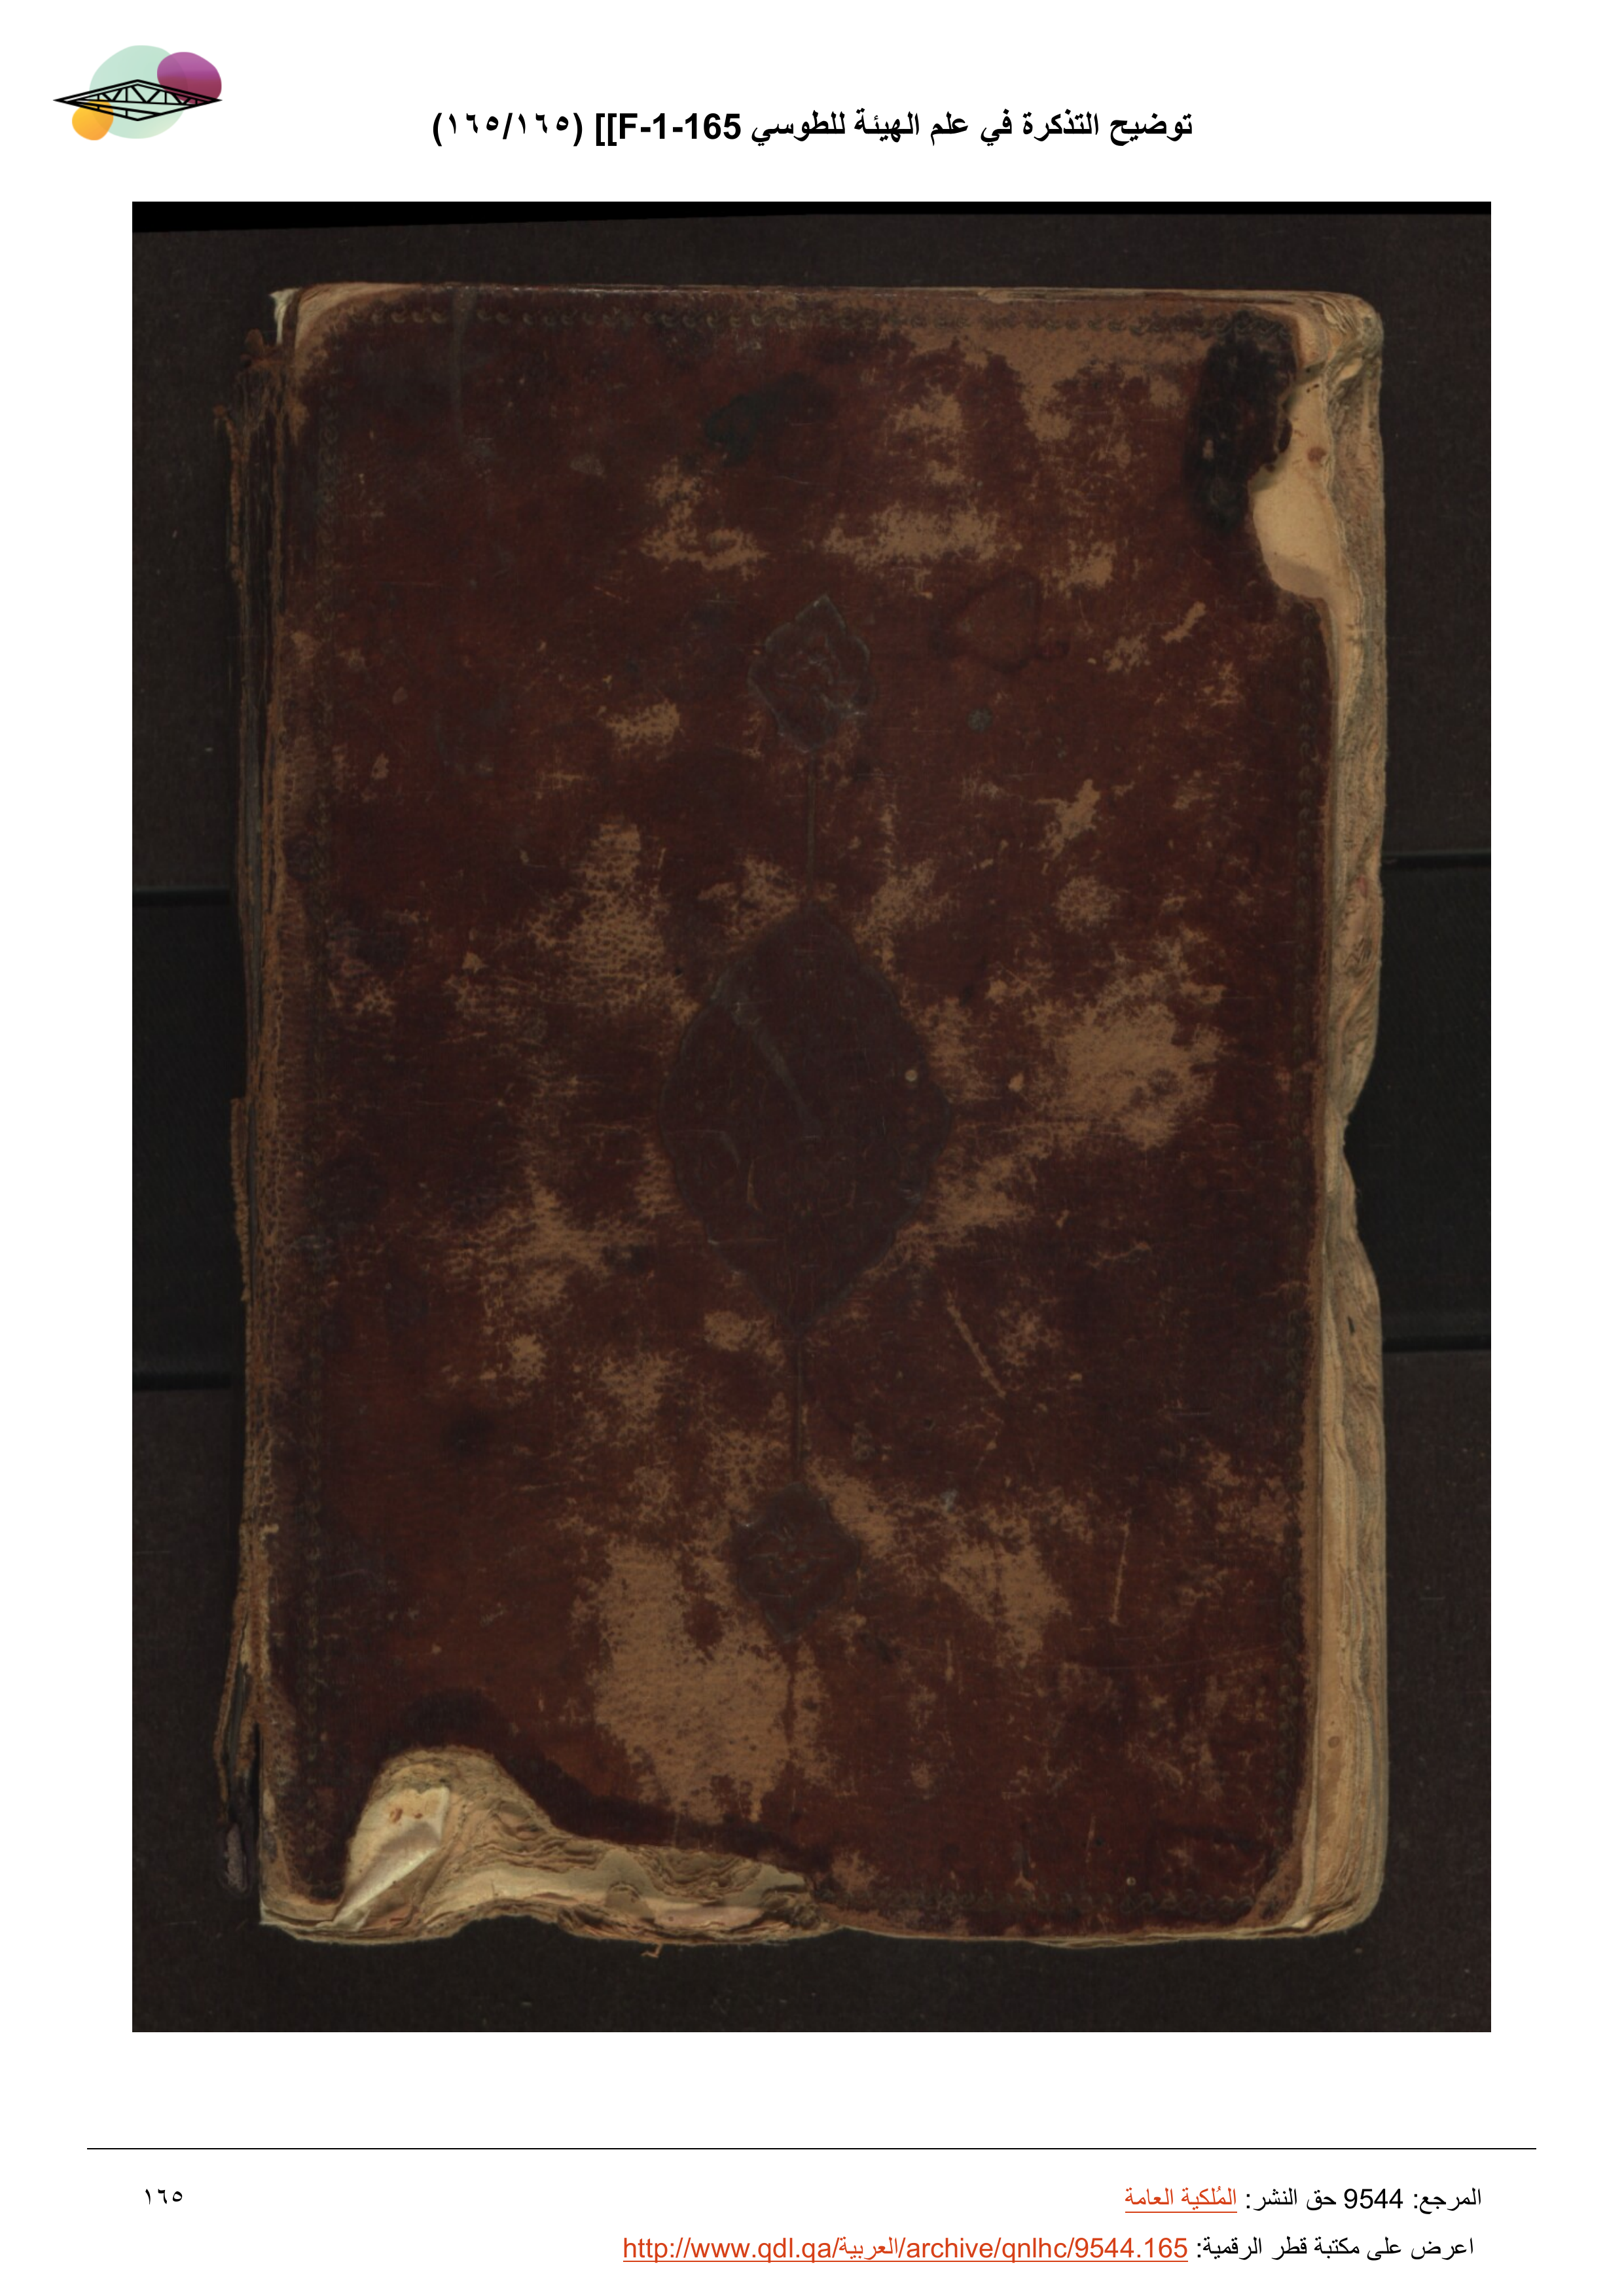 توضيح التذكرة في علم الهيئة للطوسي F-1-165]] (١٦٥/١٦٥)
المرجع: 9544 حق النشر: المُلكية العامة
١٦٥
اعرض على مكتبة قطر الرقمية: http://www.qdl.qa/العربية/archive/qnlhc/9544.165